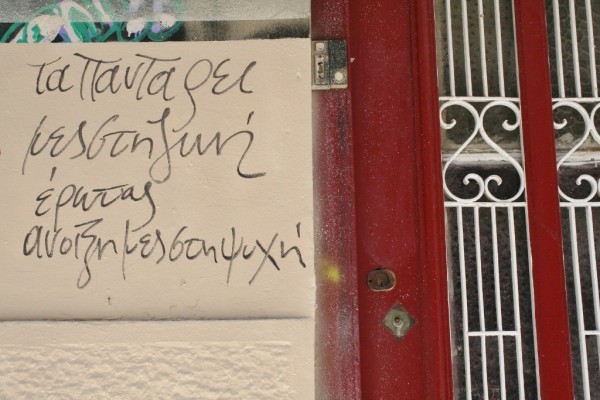 τα παντα ρει
μες στη ζωή
έρωτας
ανοιξη μες στη ψυχή